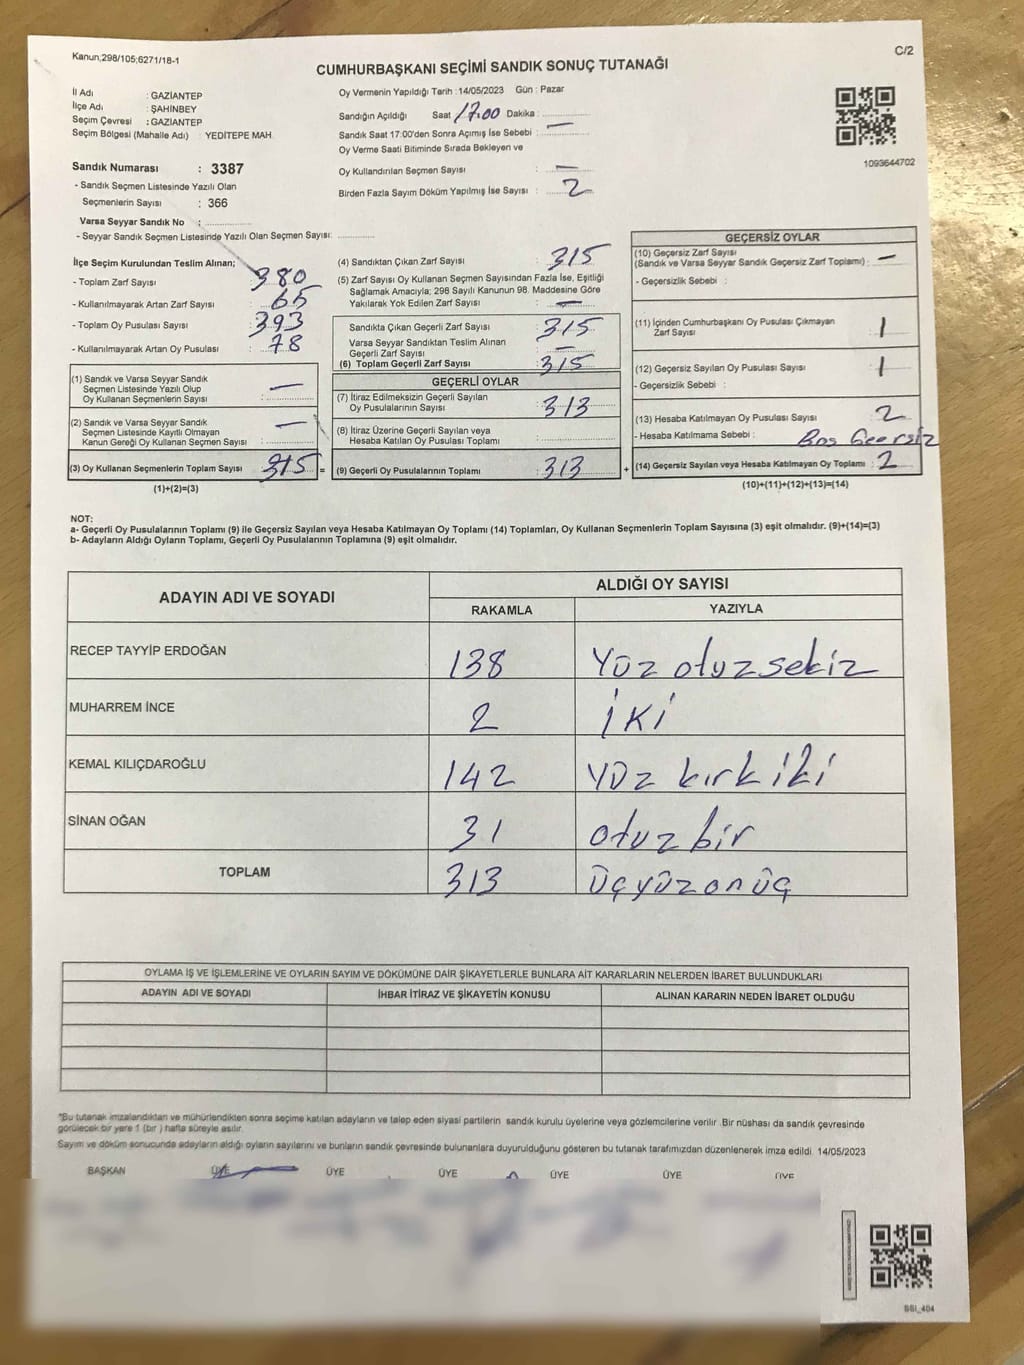 Kanun;298/105;6271/18-1
C/2
CUMHURBAŞKANI SEÇİMİ SANDIK SONUÇ TUTANAĞI
İl Adı : GAZİANTEP
İlçe Adı : ŞAHİNBEY
Seçim Çevresi : GAZİANTEP
Seçim Bölgesi (Mahalle Adı) : YEDİTEPE MAH.
Sandık Numarası : 3387
- Sandık Seçmen Listesinde Yazılı Olan
Seçmenlerin Sayısı : 366
Varsa Seyyar Sandık No :
- Seyyar Sandık Seçmen Listesinde Yazılı Olan Seçmen Sayısı:
Oy Vermenin Yapıldığı Tarih :14/05/2023 Gün : Pazar
Sandığın Açıldığı Saat 17.00 Dakika :
Sandık Saat 17:00'den Sonra Açımış İse Sebebi : —
Oy Verme Saati Bitiminde Sırada Bekleyen ve
Oy Kullandırılan Seçmen Sayısı : —
Birden Fazla Sayım Döküm Yapılmış İse Sayısı : 2
1093644702
İlçe Seçim Kurulundan Teslim Alınan;
- Toplam Zarf Sayısı : 380
- Kullanılmayarak Artan Zarf Sayısı : 65
- Toplam Oy Pusulası Sayısı : 393
- Kullanılmayarak Artan Oy Pusulası : 78
(1) Sandık ve Varsa Seyyar Sandık
Seçmen Listesinde Yazılı Olup
Oy Kullanan Seçmenlerin Sayısı : —
(2) Sandık ve Varsa Seyyar Sandık
Seçmen Listesinde Kayıtlı Olmayan
Kanun Gereği Oy Kullanan Seçmen Sayısı : —
(3) Oy Kullanan Seçmenlerin Toplam Sayısı : 315 =
(1)+(2)=(3)
(4) Sandıktan Çıkan Zarf Sayısı : 315
(5) Zarf Sayısı Oy Kullanan Seçmen Sayısından Fazla İse, Eşitliği
Sağlamak Amacıyla; 298 Sayılı Kanunun 98. Maddesine Göre
Yakılarak Yok Edilen Zarf Sayısı : —
Sandıkta Çıkan Geçerli Zarf Sayısı : 315
Varsa Seyyar Sandıktan Teslim Alınan
Geçerli Zarf Sayısı : —
(6) Toplam Geçerli Zarf Sayısı : 315
GEÇERLİ OYLAR
(7) İtiraz Edilmeksizin Geçerli Sayılan
Oy Pusulalarının Sayısı : 313
(8) İtiraz Üzerine Geçerli Sayılan veya
Hesaba Katılan Oy Pusulası Toplamı :
(9) Geçerli Oy Pusulalarının Toplamı : 313 +
GEÇERSİZ OYLAR
(10) Geçersiz Zarf Sayısı
(Sandık ve Varsa Seyyar Sandık Geçersiz Zarf Toplamı) : —
- Geçersizlik Sebebi :
(11) İçinden Cumhurbaşkanı Oy Pusulası Çıkmayan
Zarf Sayısı : 1
(12) Geçersiz Sayılan Oy Pusulası Sayısı : 1
- Geçersizlik Sebebi :
(13) Hesaba Katılmayan Oy Pusulası Sayısı : 2
- Hesaba Katılmama Sebebi : Boş Geersiz
(14) Geçersiz Sayılan veya Hesaba Katılmayan Oy Toplamı : 2
(10)+(11)+(12)+(13)=(14)
NOT:
a- Geçerli Oy Pusulalarının Toplamı (9) ile Geçersiz Sayılan veya Hesaba Katılmayan Oy Toplamı (14) Toplamları, Oy Kullanan Seçmenlerin Toplam Sayısına (3) eşit olmalıdır. (9)+(14)=(3)
b- Adayların Aldığı Oyların Toplamı, Geçerli Oy Pusulalarının Toplamına (9) eşit olmalıdır.
ADAYIN ADI VE SOYADI
ALDIĞI OY SAYISI
RAKAMLA YAZIYLA
RECEP TAYYİP ERDOĞAN 138 Yüz otuzsekiz
MUHARREM İNCE 2 iki
KEMAL KILIÇDAROĞLU 142 Yüz kırkiki
SİNAN OĞAN 31 otuzbir
TOPLAM 313 üçyüzonüç
OYLAMA İŞ VE İŞLEMLERİNE VE OYLARIN SAYIM VE DÖKÜMÜNE DAİR ŞİKAYETLERLE BUNLARA AİT KARARLARIN NELERDEN İBARET BULUNDUKLARI
ADAYIN ADI VE SOYADI İHBAR İTİRAZ VE ŞİKAYETİN KONUSU ALINAN KARARIN NEDEN İBARET OLDUĞU
*Bu tutanak imzalandıktan ve mühürlendikten sonra seçime katılan adayların ve talep eden siyasi partilerin sandık kurulu üyelerine veya gözlemcilerine verilir .Bir nüshası da sandık çevresinde
görülecek bir yere 1 (bir ) hafta süreyle asılır.
Sayım ve döküm sonucunda adayların aldığı oyların sayılarını ve bunların sandık çevresinde bulunanlara duyurulduğunu gösteren bu tutanak tarafımızdan düzenlenerek imza edildi. 14/05/2023
BAŞKAN ÜYE ÜYE ÜYE ÜYE ÜYE ÜYE
BBI_404